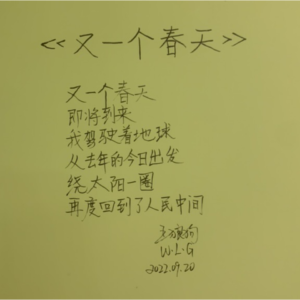 <<又一个春天>>
又一个春天
即将到来
我驾驶着地球
从去年的今日出发
绕太阳一圈
再度回到了人民中间
W·L·G
2022.09.20